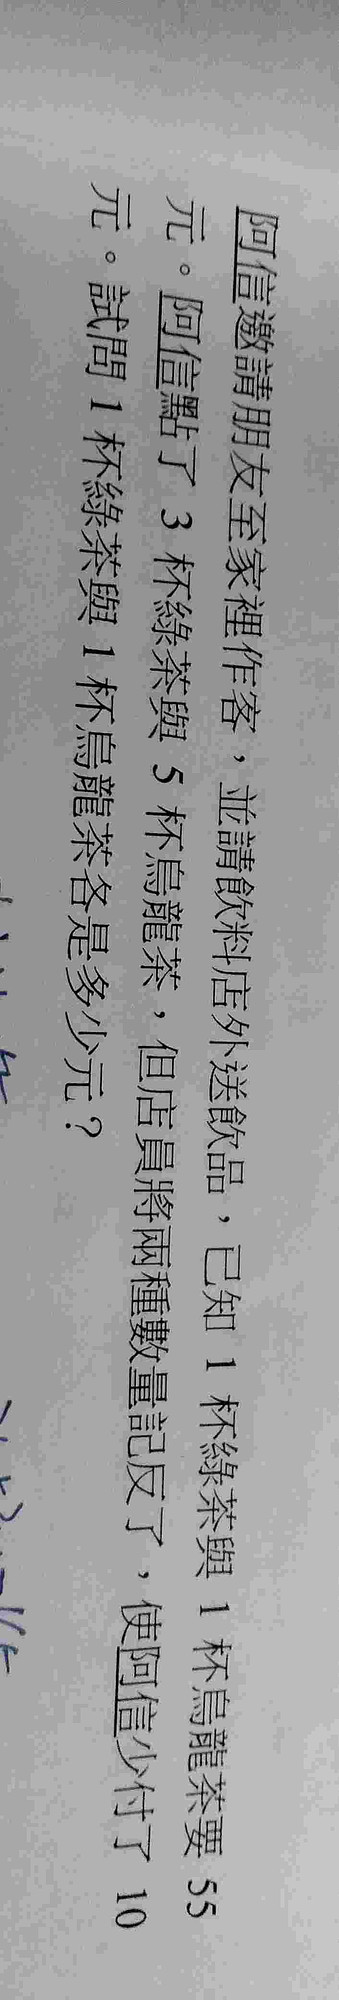 阿信邀請朋友至家裡作客，並請飲料店外送飲品，已知 1 杯綠茶與 1 杯烏龍茶要 55
元。阿信點了 3 杯綠茶與 5 杯烏龍茶，但店員將兩種數量記反了，使阿信少付了 10
元。試問 1 杯綠茶與 1 杯烏龍茶各是多少元？